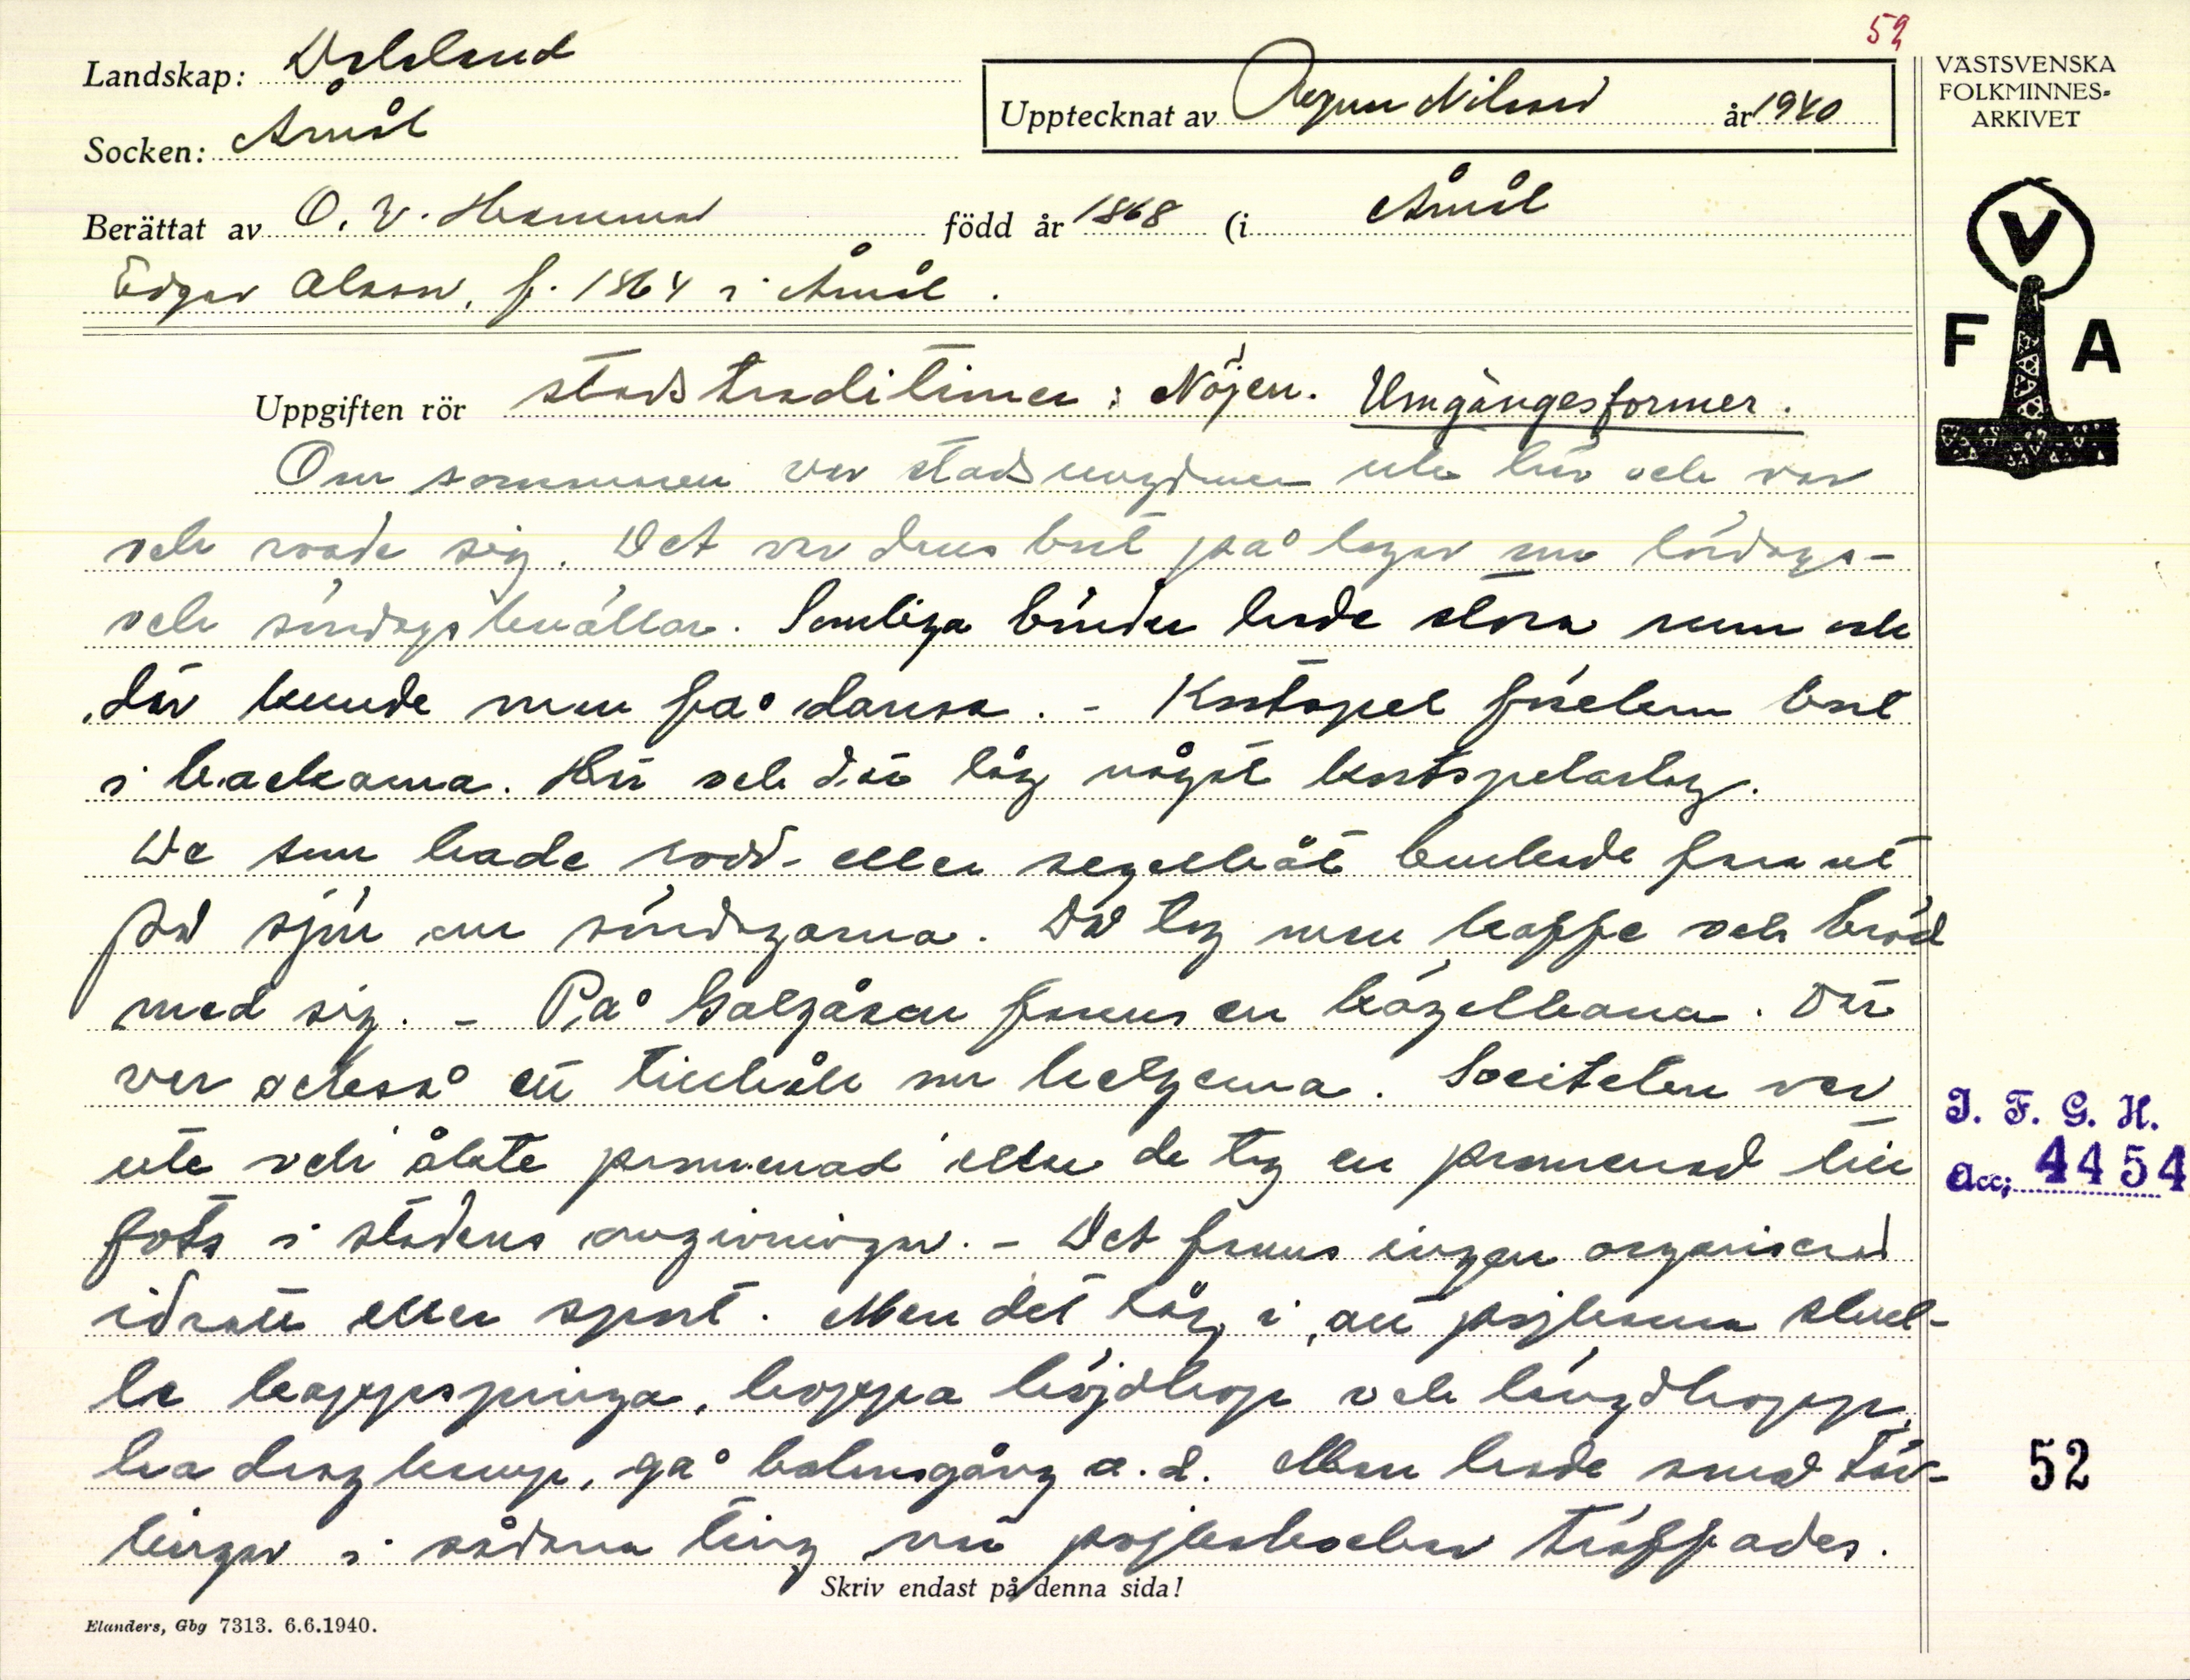 52
Landskap: Dalsland
Socken: Åmål
Upptecknat av Ragnar Nilsson år 1940
VÄSTSVENSKA
FOLKMINNES-
ARKIVET
Berättat av O. V. Hammar född år 1868 (i Åmål
Edgar Olsson, f. 1864 i Åmål.
V
F A
Uppgiften rör stadstraditioner: Nöjen. Umgängesformer.
Om sommaren var stadsungdomen ute här och var
och roade sig. Det var dans bort på logar om lördags-
och söndagskvällar. Somliga bönder hade stora rum och
där kunde man få dansa. - Kortspel förekom bort
i backarna. Här och där låg något kortspelarlag.
De som hade rodd- eller segelbåt brukade fara ut
på sjön om söndagarna. Då tog man kaffe och bröd
med sig. - På Galgåsen fanns en kägelbana. Där
var också ett tillhåll om helgerna. Societeten var
ute och åkte promenad eller de tog en promenad till
fots i stadens omgivningar. - Det fanns ingen organiserad
idrott eller sport. Men det låg i, att pojkarna skul-
le kappspringa, hoppa höjdhopp och längdhopp,
ha dragkamp, gå balansgång o.d. Man hade små täv-
lingar i sådana ting när pojkahoclar träffades.
J. F. G. H.
Acc; 4454
52
Skriv endast på denna sida!
Elanders, Gbg 7313. 6.6.1940.